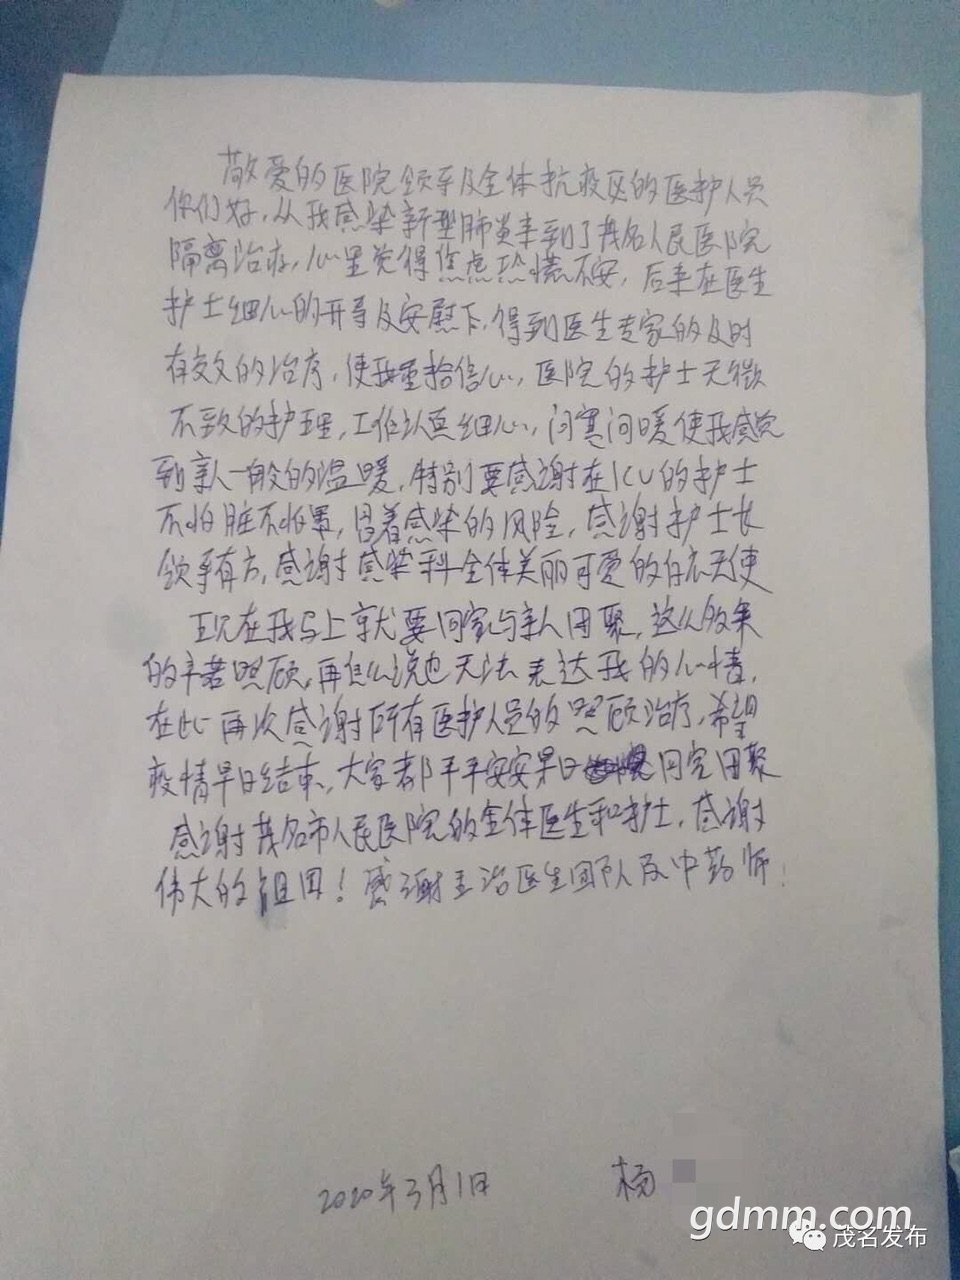 敬爱的医院领导及全体抗疫区的医护人员
你们好，从我感染新型肺炎来到了茂名人民医院
隔离治疗，心里觉得焦虑恐慌不安，后来在医生
护士细心的开导及安慰下，得到医生专家的及时
有效的治疗，使我重拾信心，医院的护士无微
不致的护理，工作认真细心，问寒问暖使我感觉
到亲人一般的温暖，特别要感谢在ICU的护士
不怕脏不怕累，冒着感染的风险，感谢护士长
领导有方，感谢感染科全体美丽可爱的白衣天使
现在我马上就要回家与亲人团聚，这么多天来
的辛苦照顾，再怎么说也无法表达我的心情，
在此再次感谢所有医护人员的照顾治疗，希望
疫情早日结束，大家都平平安安早日回家团聚
感谢茂名市人民医院的全体医生和护士，感谢
伟大的祖国！感谢主治医生团队及中药师！
2020年3月1日 杨
gdmm.com
茂名发布